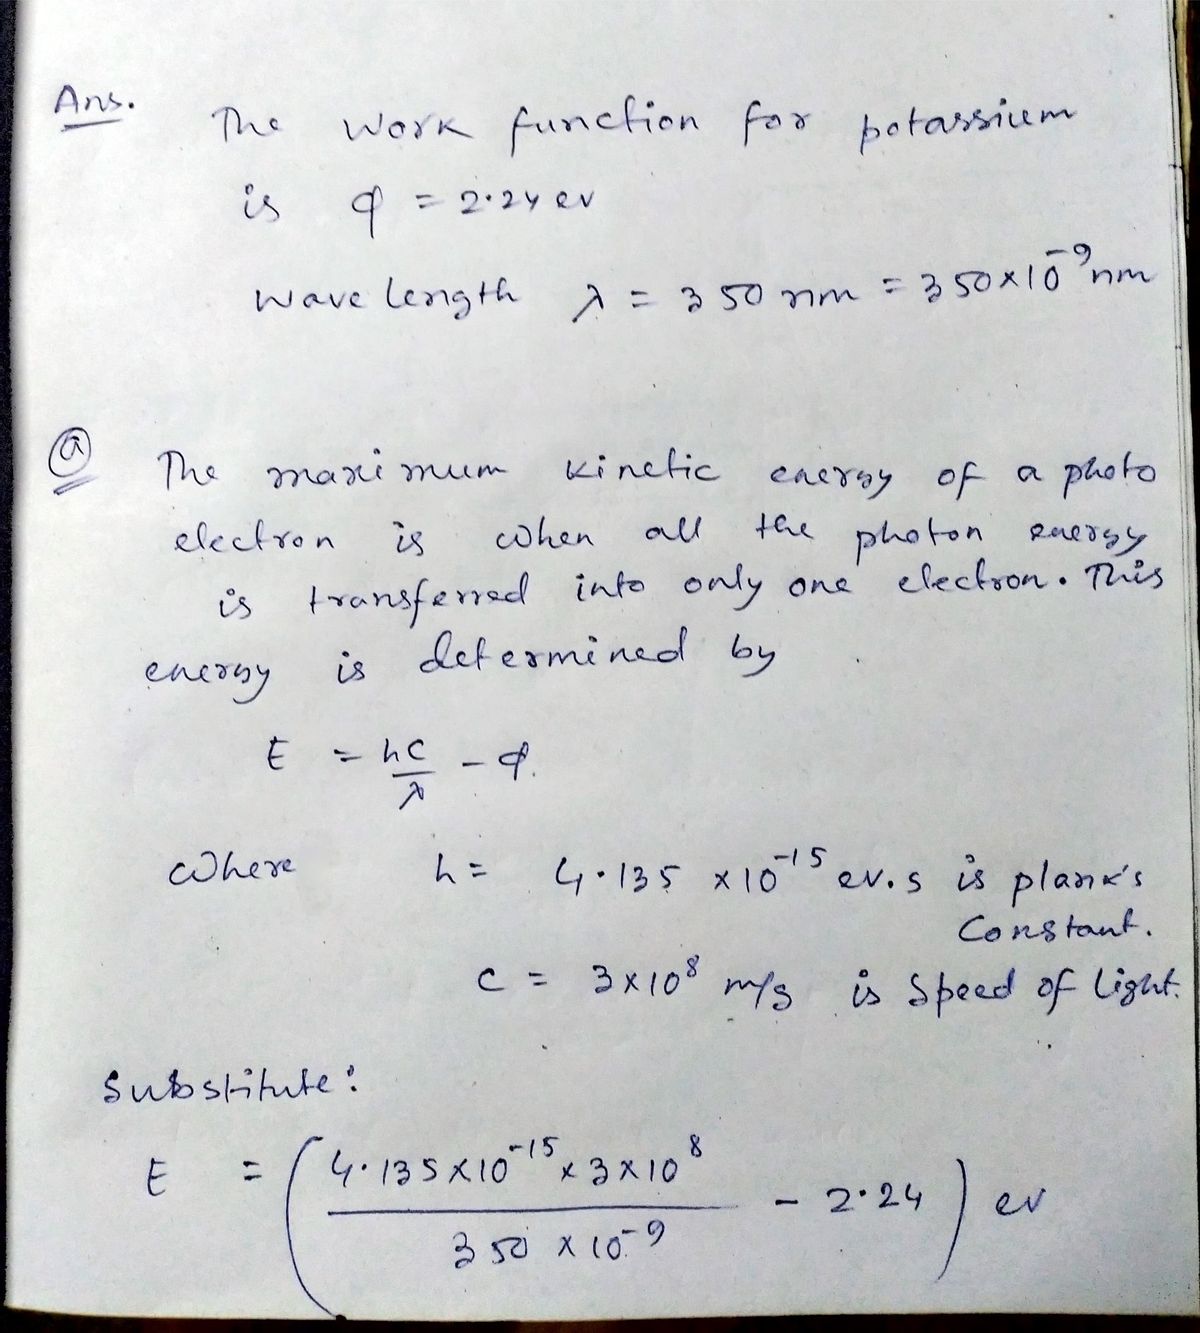 Ans.
The work function for potassium
is φ = 2.24 ev
wave length λ = 350 nm = 350×10⁻⁹ nm
ⓐ The maximum kinetic energy of a photo
electron is when all the photon energy
is transferred into only one electron. This
energy is determined by
E = hc/λ - φ.
where h = 4.135 ×10⁻¹⁵ ev.s is plank's
Constant.
c = 3×10⁸ m/s is speed of light.
Substitute:
E = (4.135×10⁻¹⁵ × 3×10⁸ / 350 × 10⁻⁹ - 2.24) ev